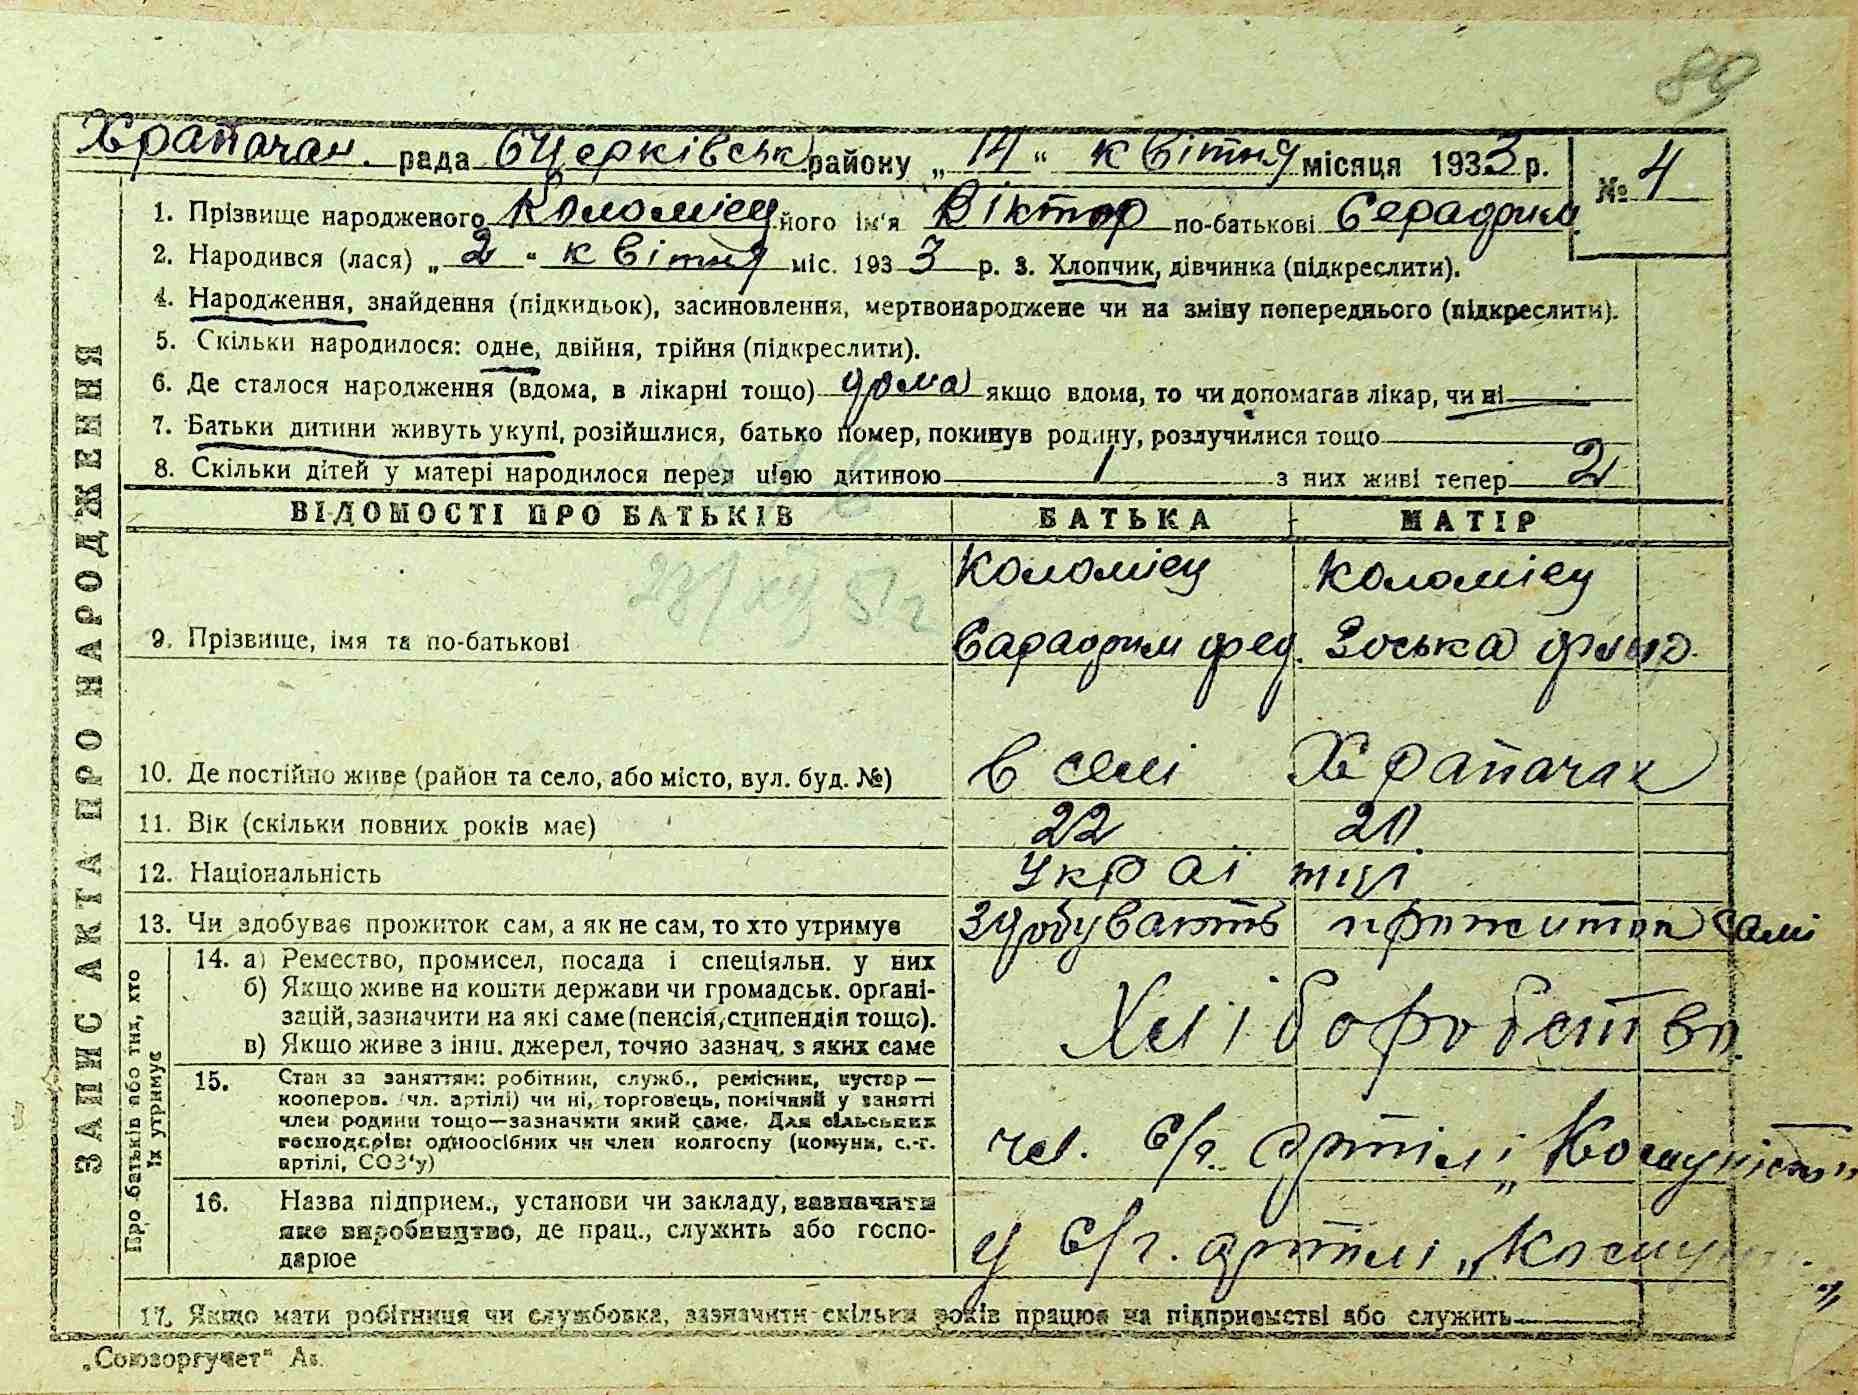 89
Храпачан. рада бЦерківськ району „14“ квітня місяця 1933 р. № 4
ЗАПИС АКТА ПРО НАРОДЖЕННЯ
1. Прізвище народженого Коломієц його ім'я Віктор по-батькові
2. Народився (лася) „2“ квітня міс. 1933 р. 3. Хлопчик, дівчинка (підкреслити).
4. Народження, знайдення (підкидьок), засиновлення, мертвонароджене чи на зміну попереднього (підкреслити).
5. Скільки народилося: одне, двійня, трійня (підкреслити).
6. Де сталося народження (вдома, в лікарні тощо) дома якщо вдома, то чи допомагав лікар, чи ні
7. Батьки дитини живуть укупі, розійшлися, батько помер, покинув родину, розлучилися тощо
8. Скільки дітей у матері народилося перед цією дитиною 1 з них живі тепер 2
ВІДОМОСТІ ПРО БАТЬКІВ БАТЬКА МАТІР
Коломієц Коломієц
9. Прізвище, імя та по-батькові фед. Зоська
10. Де постійно живе (район та село, або місто, вул. буд. №) в селі Храпачах
11. Вік (скільки повних років має) 22 20
12. Національність Украі нці
13. Чи здобуває прожиток сам, а як не сам, то хто утримує здобувають прожиток самі
Про батьків або тих, хто
їх утримує
14. а) Ремество, промисел, посада і спеціяльн. у них
б) Якщо живе на кошти держави чи громадськ. органі-
зацій, зазначити на які саме (пенсія, стипендія тощо).
в) Якщо живе з інш. джерел, точно зазнач. з яких саме
Хліборобство.
15. Стан за заняттям: робітник, служб., ремісник, кустар —
кооперов. (чл. артілі) чи ні, торговець, помічний у занятті
член родини тощо—зазначити який саме. Для сільських
господарів: одноосібних чи член колгоспу (комуни, с.-г.
артілі, СОЗ'у)
чл. С/г. артілі „Комуніст“
16. Назва підприєм., установи чи закладу, зазначити
яке виробництво, де прац., служить або госпо-
дарює
у С/г. артілі
17. Якщо мати робітниця чи службовка, зазначити скільки років працює на підприємстві або служить
„Союзоргучет“